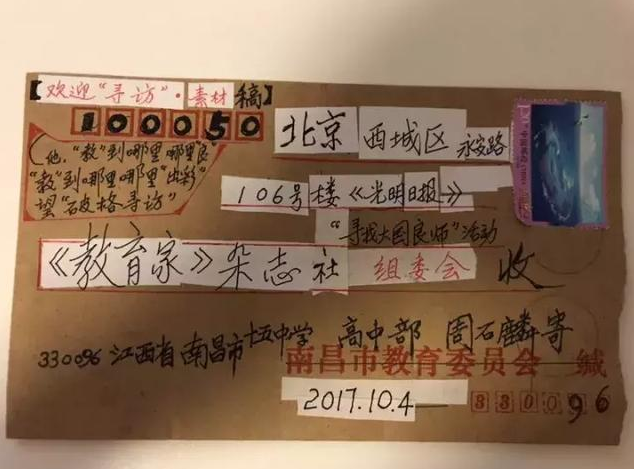 【欢迎“寻访”·素材稿】
100050
北京 西城区 永安路
(他,“教”到哪里哪里良
“教”到哪里哪里“出彩”
望“破格寻访”
106号楼《光明日报》
“寻找大国良师”活动
《教育家》杂志社 组委会 收
330096 江西省南昌市十五中学 高中部 周石麟寄
南昌市教育委员会 缄
2017.10.4
330096